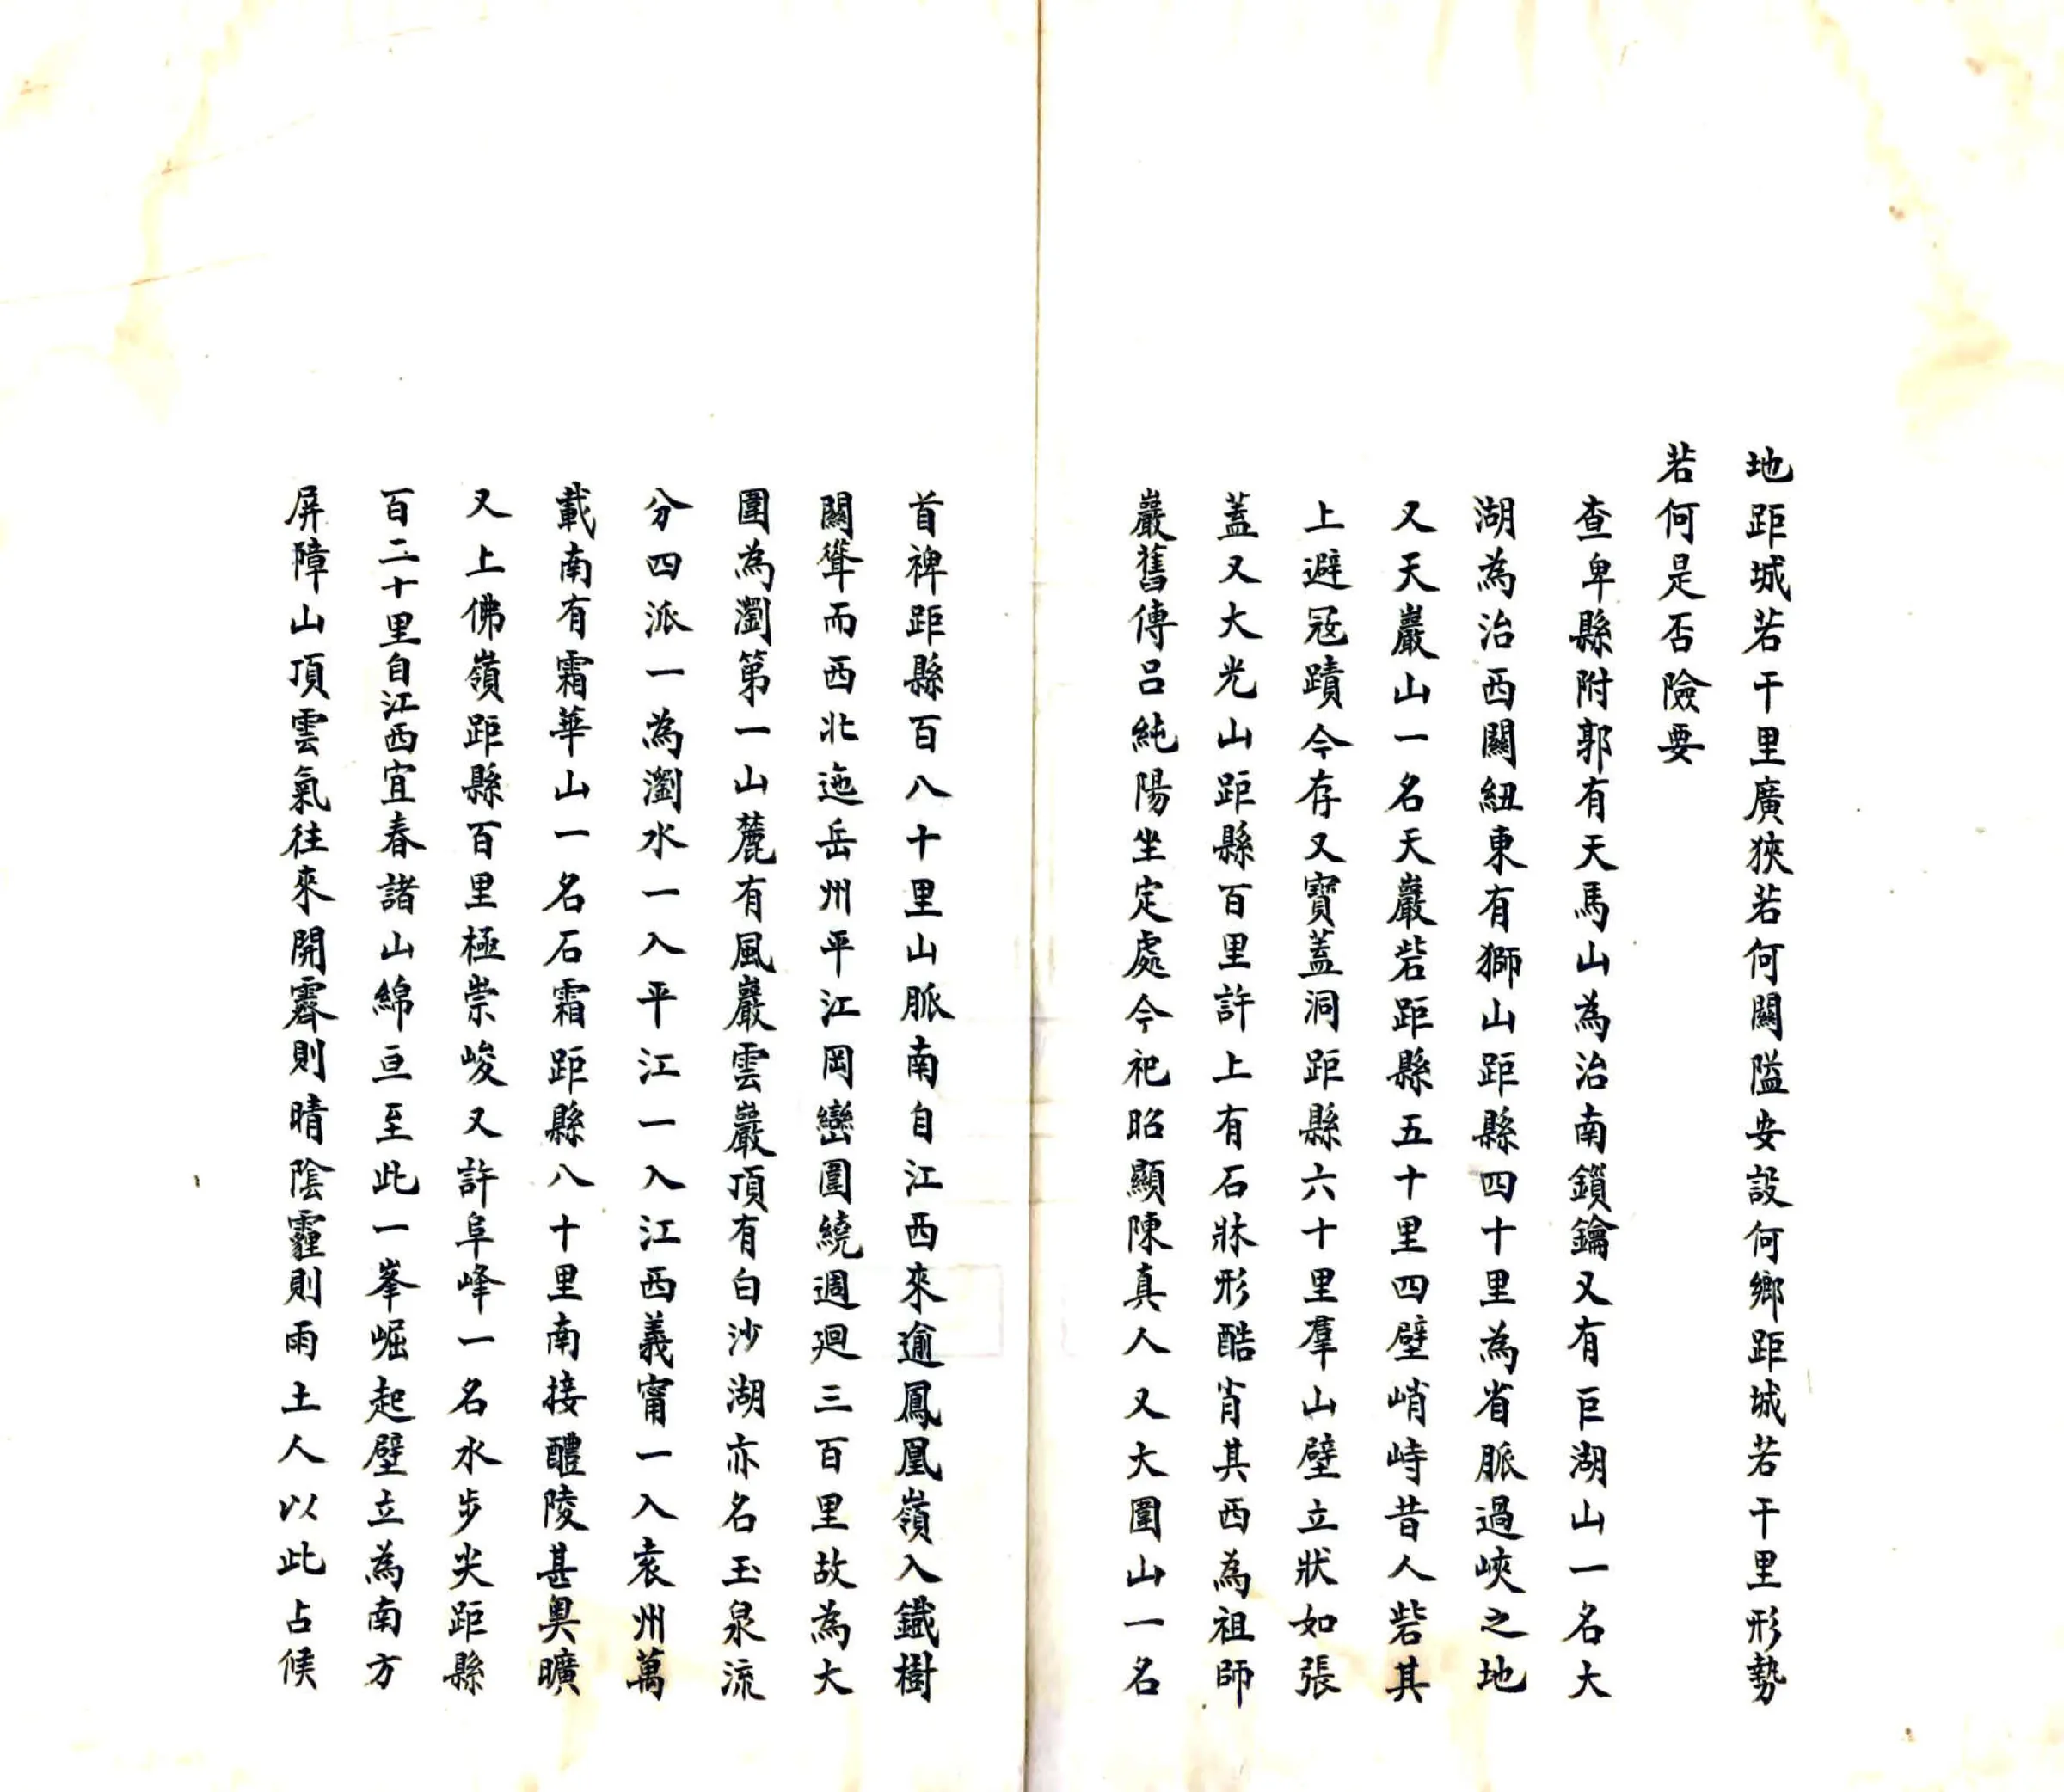 地距城若干里廣狹若何關隘安設何鄉距城若干里形勢
若何是否險要
查卑縣附郭有天馬山為治南鎖鑰又有巨湖山一名大
湖為治西關紐東有獅山距縣四十里為省脈過峽之地
又天巖山一名天巖砦距縣五十里四壁峭峙昔人砦其
上避冦蹟今存又寶蓋洞距縣六十里羣山壁立狀如張
蓋又大光山距縣百里許上有石牀形酷肖其西為祖師
巖舊傳呂純陽坐定處今祀昭顯陳真人又大圍山一名
首裨距縣百八十里山脈南自江西來逾鳳凰嶺入鐵樹
關聳而西北迤岳州平江岡巒圍繞週廻三百里故為大
圍為瀏第一山麓有風巖雲巖頂有白沙湖亦名玉泉流
分四派一為瀏水一入平江一入江西義甯一入袁州萬
載南有霜華山一名石霜距縣八十里南接醴陵甚奥曠
又上佛嶺距縣百里極崇峻又許阜峰一名水步尖距縣
百二十里自江西宜春諸山綿亘至此一峯崛起壁立為南方
屏障山頂雲氣往來開霽則晴陰霾則雨土人以此占候